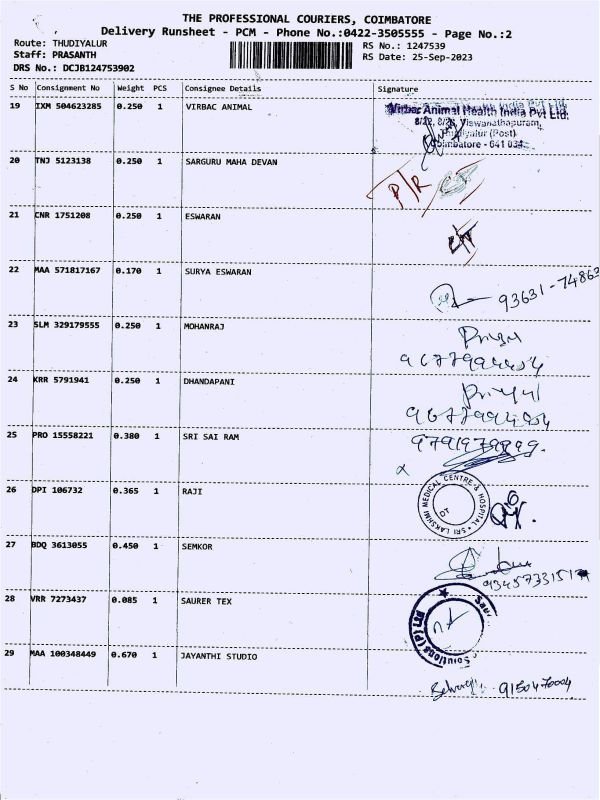 THE PROFESSIONAL COURIERS, COIMBATORE
Delivery Runsheet - PCM - Phone No.:0422-3505555 - Page No.:2
Route: THUDIYALUR
RS No.: 1247539
Staff: PRASANTH
RS Date: 25-Sep-2023
DRS No.: DCJB124753902
S No Consignment No Weight PCS Consignee Details Signature
19 IXM 504623285 0.250 1 VIRBAC ANIMAL
Virbac Animal Health India Pvt Ltd.
8/22, 8/26, Viswanathapuram,
Thudiyalur (Post)
Coimbatore - 641 034.
20 TNJ 5123138 0.250 1 SARGURU MAHA DEVAN
P/R
21 CNR 1751208 0.250 1 ESWARAN
22 MAA 571817167 0.170 1 SURYA ESWARAN
93631-74863
23 SLM 329179555 0.250 1 MOHANRAJ
Priya
24 KRR 5791941 0.250 1 DHANDAPANI
Priya
25 PRO 15558221 0.380 1 SRI SAI RAM
26 DPI 106732 0.365 1 RAJI
SRI LAKSHMI MEDICAL CENTRE & HOSPITAL
DT
27 BDQ 3613055 0.450 1 SEMKOR
28 VRR 7273437 0.085 1 SAURER TEX
Saur Solutions (P) Ltd
29 MAA 100348449 0.670 1 JAYANTHI STUDIO
9150470004